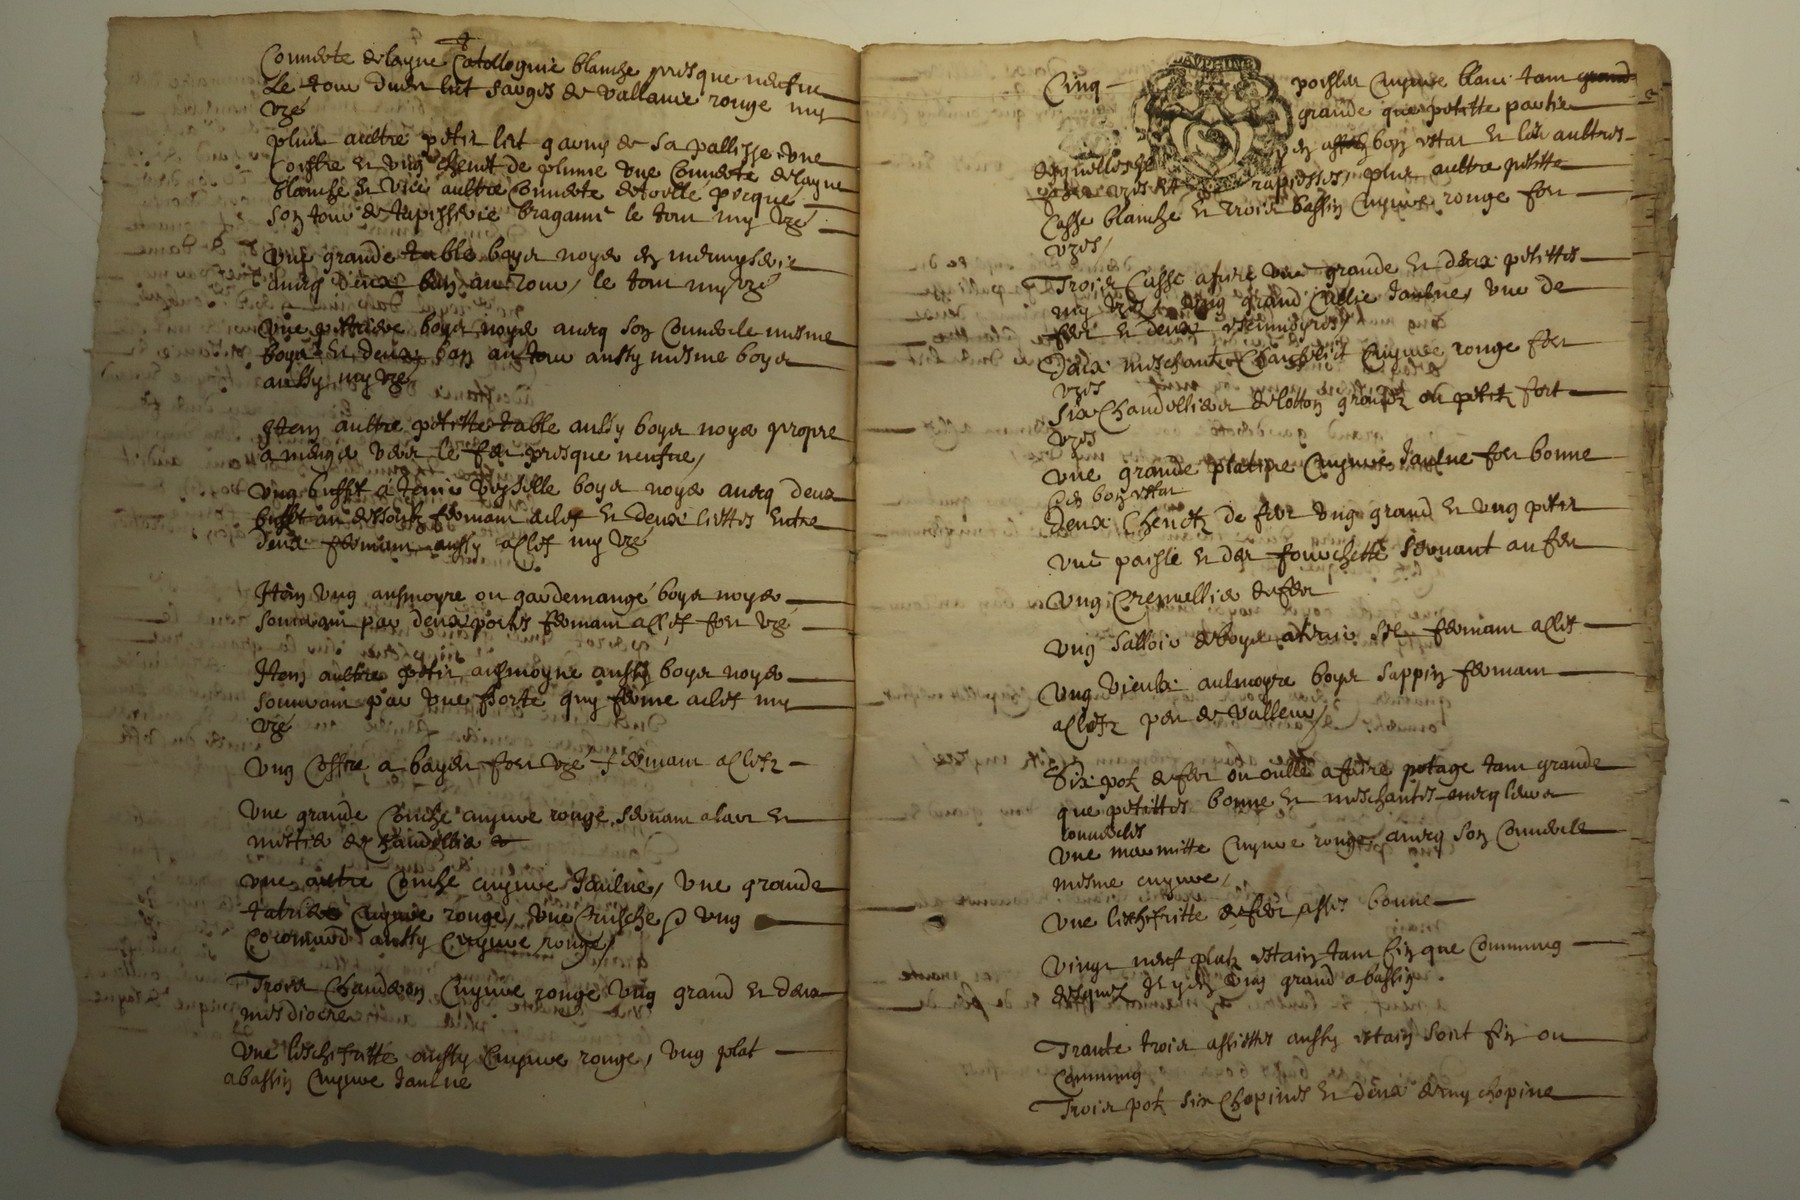 Couverte de layne Catollognie blanche presque neufve
Le tour dud. lict sarges de vallance rouge my
uzé
plus aultre petit lict garny de sa pallisse, une
Coistre et ung chevet de plume une Couverte de layne
blanche et une aultre Couverte de toille
son tour de tapisserie bragamé le tout my uzé
Une grande table boys noyer en menuyserie
avecq deux ban au tour, le tout my uzé
Une boys noyer avecq son Couvercle mesme
boys et deux ban au tour aussy mesme boys
aussy my uzé
Item aultre petitte table aussy boys noyer propre
a menger vers le feu presque neufve,
Ung buffet a tenir veyselle boys noyer avecq deux
buffet au dessoubz fermant aclef et deux liettes entre
deux fermant aussy aclef my uzé
Item ung aulmoyre ou gardemangé boys noyer
souvrant par deux portes fermant aclef fort uzé
Item aultre petit aulmoyre aussy boys noyer
souvrant par une porte quy ferme aclef my
uzé
Ung Coffre a bayeu fort uzé fermant aclefz
Une grande Conche cuyvre rouge, servant a laver et
mettre de
Une autre Conche cuyvre Jaulne, une grande
cuyvre rouge, une ung
Cocomard aussy Cuyvre rouge,
Troys Chauderon Cuyvre rouge ung grand et deux
mesdiocre
Une lischefritte aussy Cuyvre rouge, ung plat
a bassin Cuyvre Jaulne
DAUPHINE
Cinq poisles Cuyvre blanc tant grand
grande que petitte partie
desquelles en assez bon estat et les aultres
rapiesses, plus aultre petitte
Casse blanche et trois bassin Cuyvre rouge fort
uzes,
Trois Casse afrire une grande et deux petittes
my uzes, ung grand Jaulne, une de
fer et deux
Deux meschante Cuyvre rouge fort
uzes
Six Chandelliers de lotton grandz ou petitz fort
uzes
Une grande platine Cuyvre Jaulne fort bonne
en bon estat
Deux Chenetz de fer ung grand et ung petit
Une paisle et des fourchette servant au feu
Ung Cremellier de fer
Ung Salloir de boys atenir sel fermant aclef
Ung vieulx aulmoyre boys sappin fermant
aclefz peu de valleur,
Dix potz de fer ou oulle afaire potage tant grande
que petittes bonne et meschantes avecq leurs
couvercles
Une marmitte Cuyvre rouge, avecq son Couvercle
mesme cuyvre,
Une lichefritte de fer asses bonne
Vingt neuf platz estain tant fin que Communs
desquelz Il y en grand a bassin
Trante trois assiettes aussy estain soit fin ou
Commung
Trois potz six Chopines et deux demy chopine